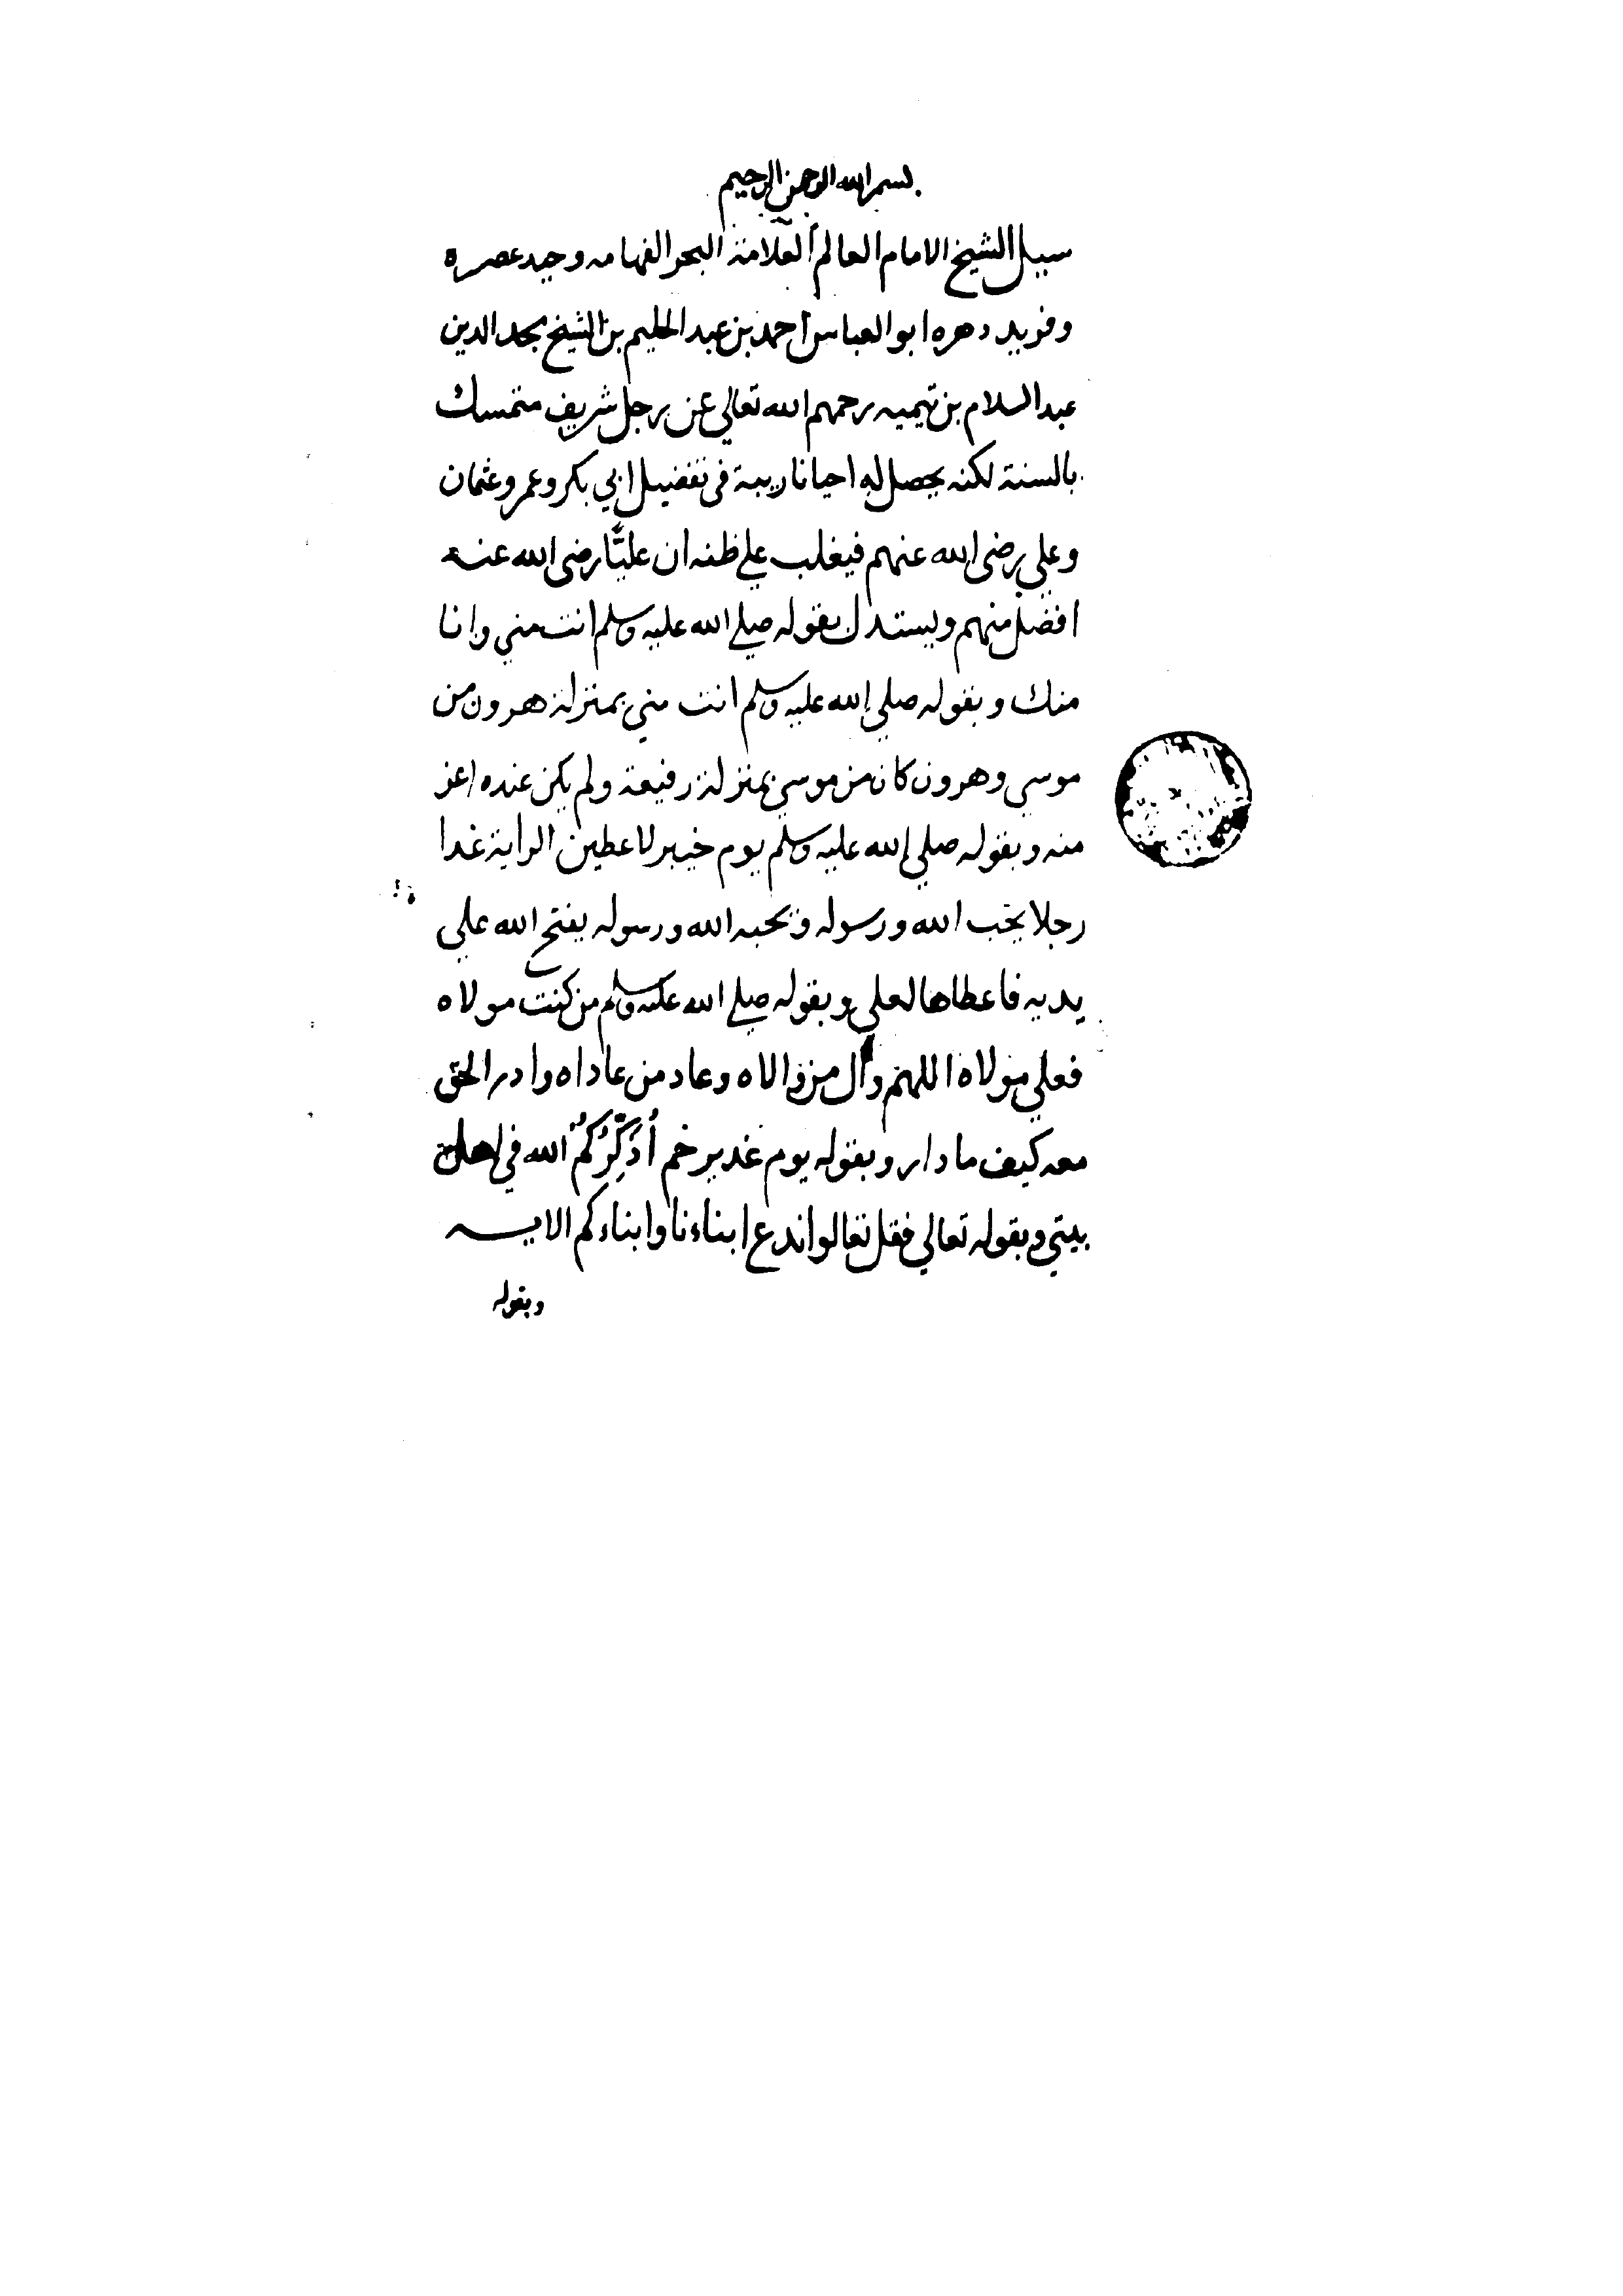 بسم الله الرحمن الرحيم
سيل الشيخ الامام العالم العلامة البحر الفهامه وحيد عصره
وفريد دهره ابو العباس احمد بن عبد الحليم بن الشيخ مجد الدين
عبد السلام بن تيميه رحمهم الله تعالي عن رجل شريف متمسك
بالسنة لكنه يحصل له احيانا ريبة فى تفضيل ابي بكر وعمر وعثمان
وعلي رضى الله عنهم فيغلب علي ظنه ان عليًّا رضى الله عنه
افضل منهم ويستدل بقوله صلي الله عليه وسلم انت مني وانا
منك وبقوله صلي الله عليه وسلم انت مني بمنزلة هرون من
موسي وهرون كان من موسي بمنزلة رفيعة ولم يكن عنده اعز
منه وبقوله صلي الله عليه وسلم يوم خيبر لاعطين الراية غدا
رجلا يحب الله ورسوله ويحبه الله ورسوله يفتح الله علي
يديه فاعطاها لعلي وبقوله صلي الله عليه وسلم من كنت مولاه
فعلي مولاه اللهم وال من والاه وعاد من عاداه وادر الحق
معه كيف ما دار وبقوله يوم غدير خم أُذَكِّرُكُمُ الله في اهل
بيتي وبقوله تعالي فقل تعالوا ندع ابناءنا وابناءكم الايه
وبقوله